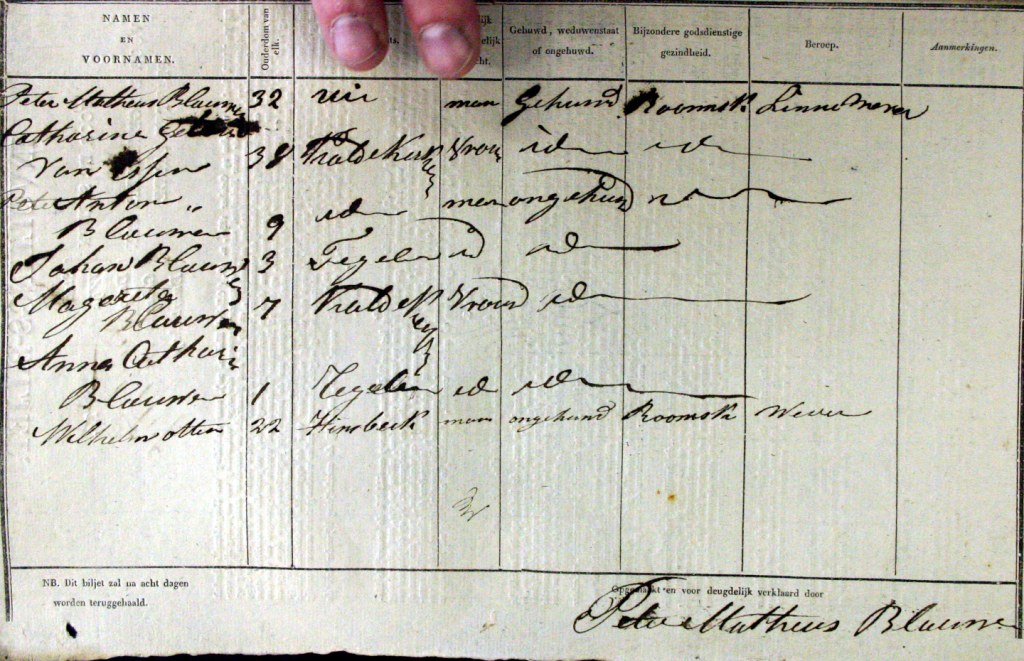 NAMEN EN VOORNAMEN. Ouderdom van elk. Gehuwd, weduwenstaat of ongehuwd. Bijzondere godsdienstige gezindheid. Beroep. Aanmerkingen.
Peter Matheus Blauwen 32 man Gehuwd Roomsk
Catharine
Van Essen 38 Vrou id id
Anton " man ongehuwd
Blauwen 9 id
Johan Blauwen 3 Tegelen id id
Magareta Vrouw id
Blauwen 7
Anna Catharin
Blauwen 1 Tegelen id id
Wilhelm otten 22 Hinsbeck man ongehuwd Roomsk Wever
NB. Dit biljet zal na acht dagen
worden teruggehaald.
Opgemaakt en voor deugdelijk verklaard door
Peter Matheus Blauwen